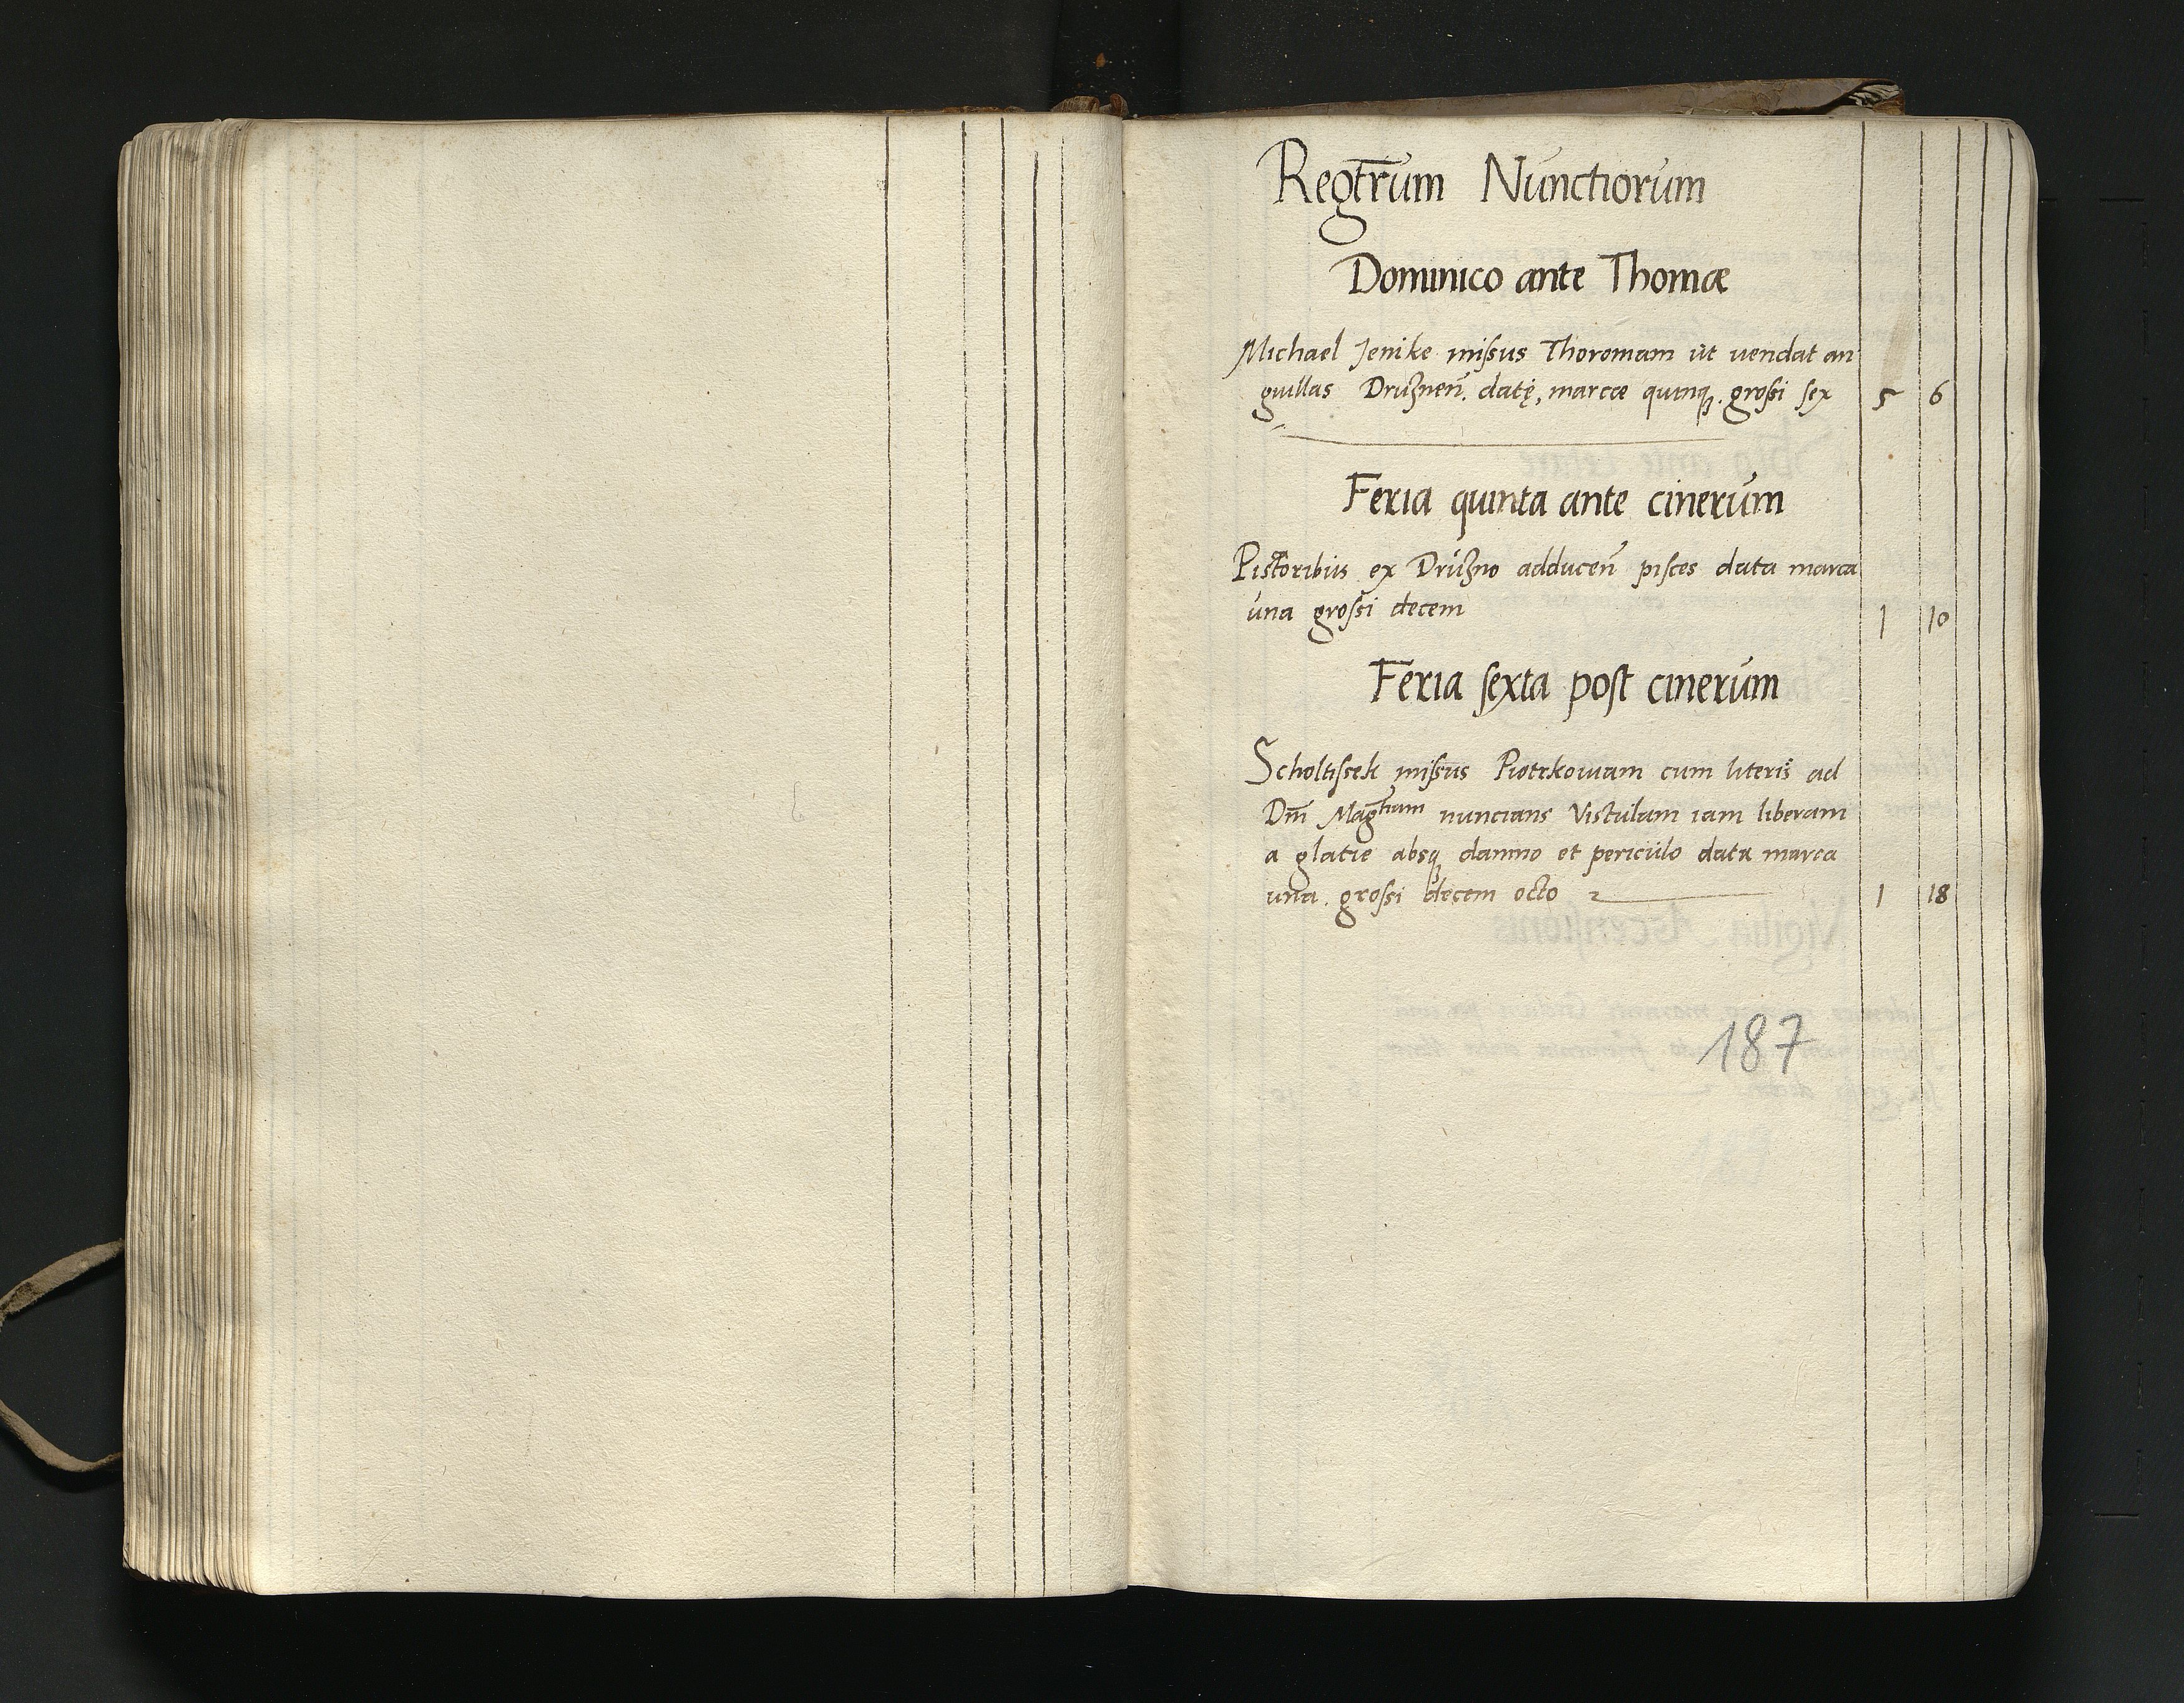 Regtrum Nunctiorum
Dominico ante Thomæ
Michael Jenike missus Thoroniam ut vendat an
guillas Druznen̄. datę, marcæ quinq̢. grossi sex 5 6
Feria quinta ante cinerum
Pistoribus ex Druzno adducen̄ pisces data marca
una grossi decem 1 10
Feria sexta post cinerum
Scholtissek missus Piotrkowiam cum literis ad
Dm̄ Mag̅trum nuncians Vistulam iam liberam
a glatie absq̢ damno et periculo data marca
una. grossi decem octo 1 18
187